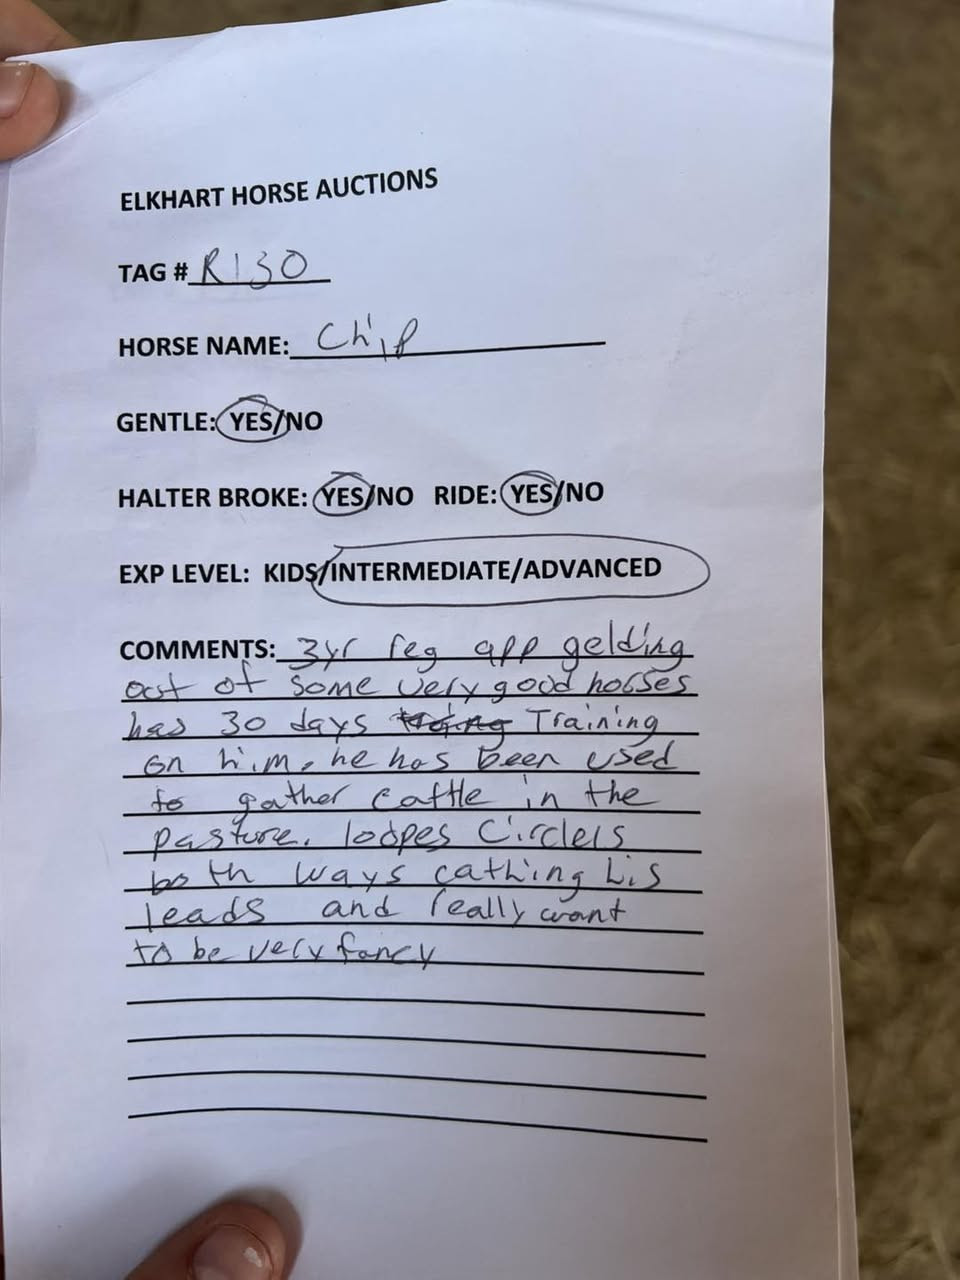 ELKHART HORSE AUCTIONS
TAG # R130
HORSE NAME: Chip
GENTLE: YES/NO
HALTER BROKE: YES/NO RIDE: YES/NO
EXP LEVEL: KIDS/INTERMEDIATE/ADVANCED
COMMENTS: 3yr reg app gelding
out of some very good horses
has 30 days Training
on him. he has been used
to gather cattle in the
pasture. loopes Circlels
both ways cathing his
leads and really want
to be very fancy